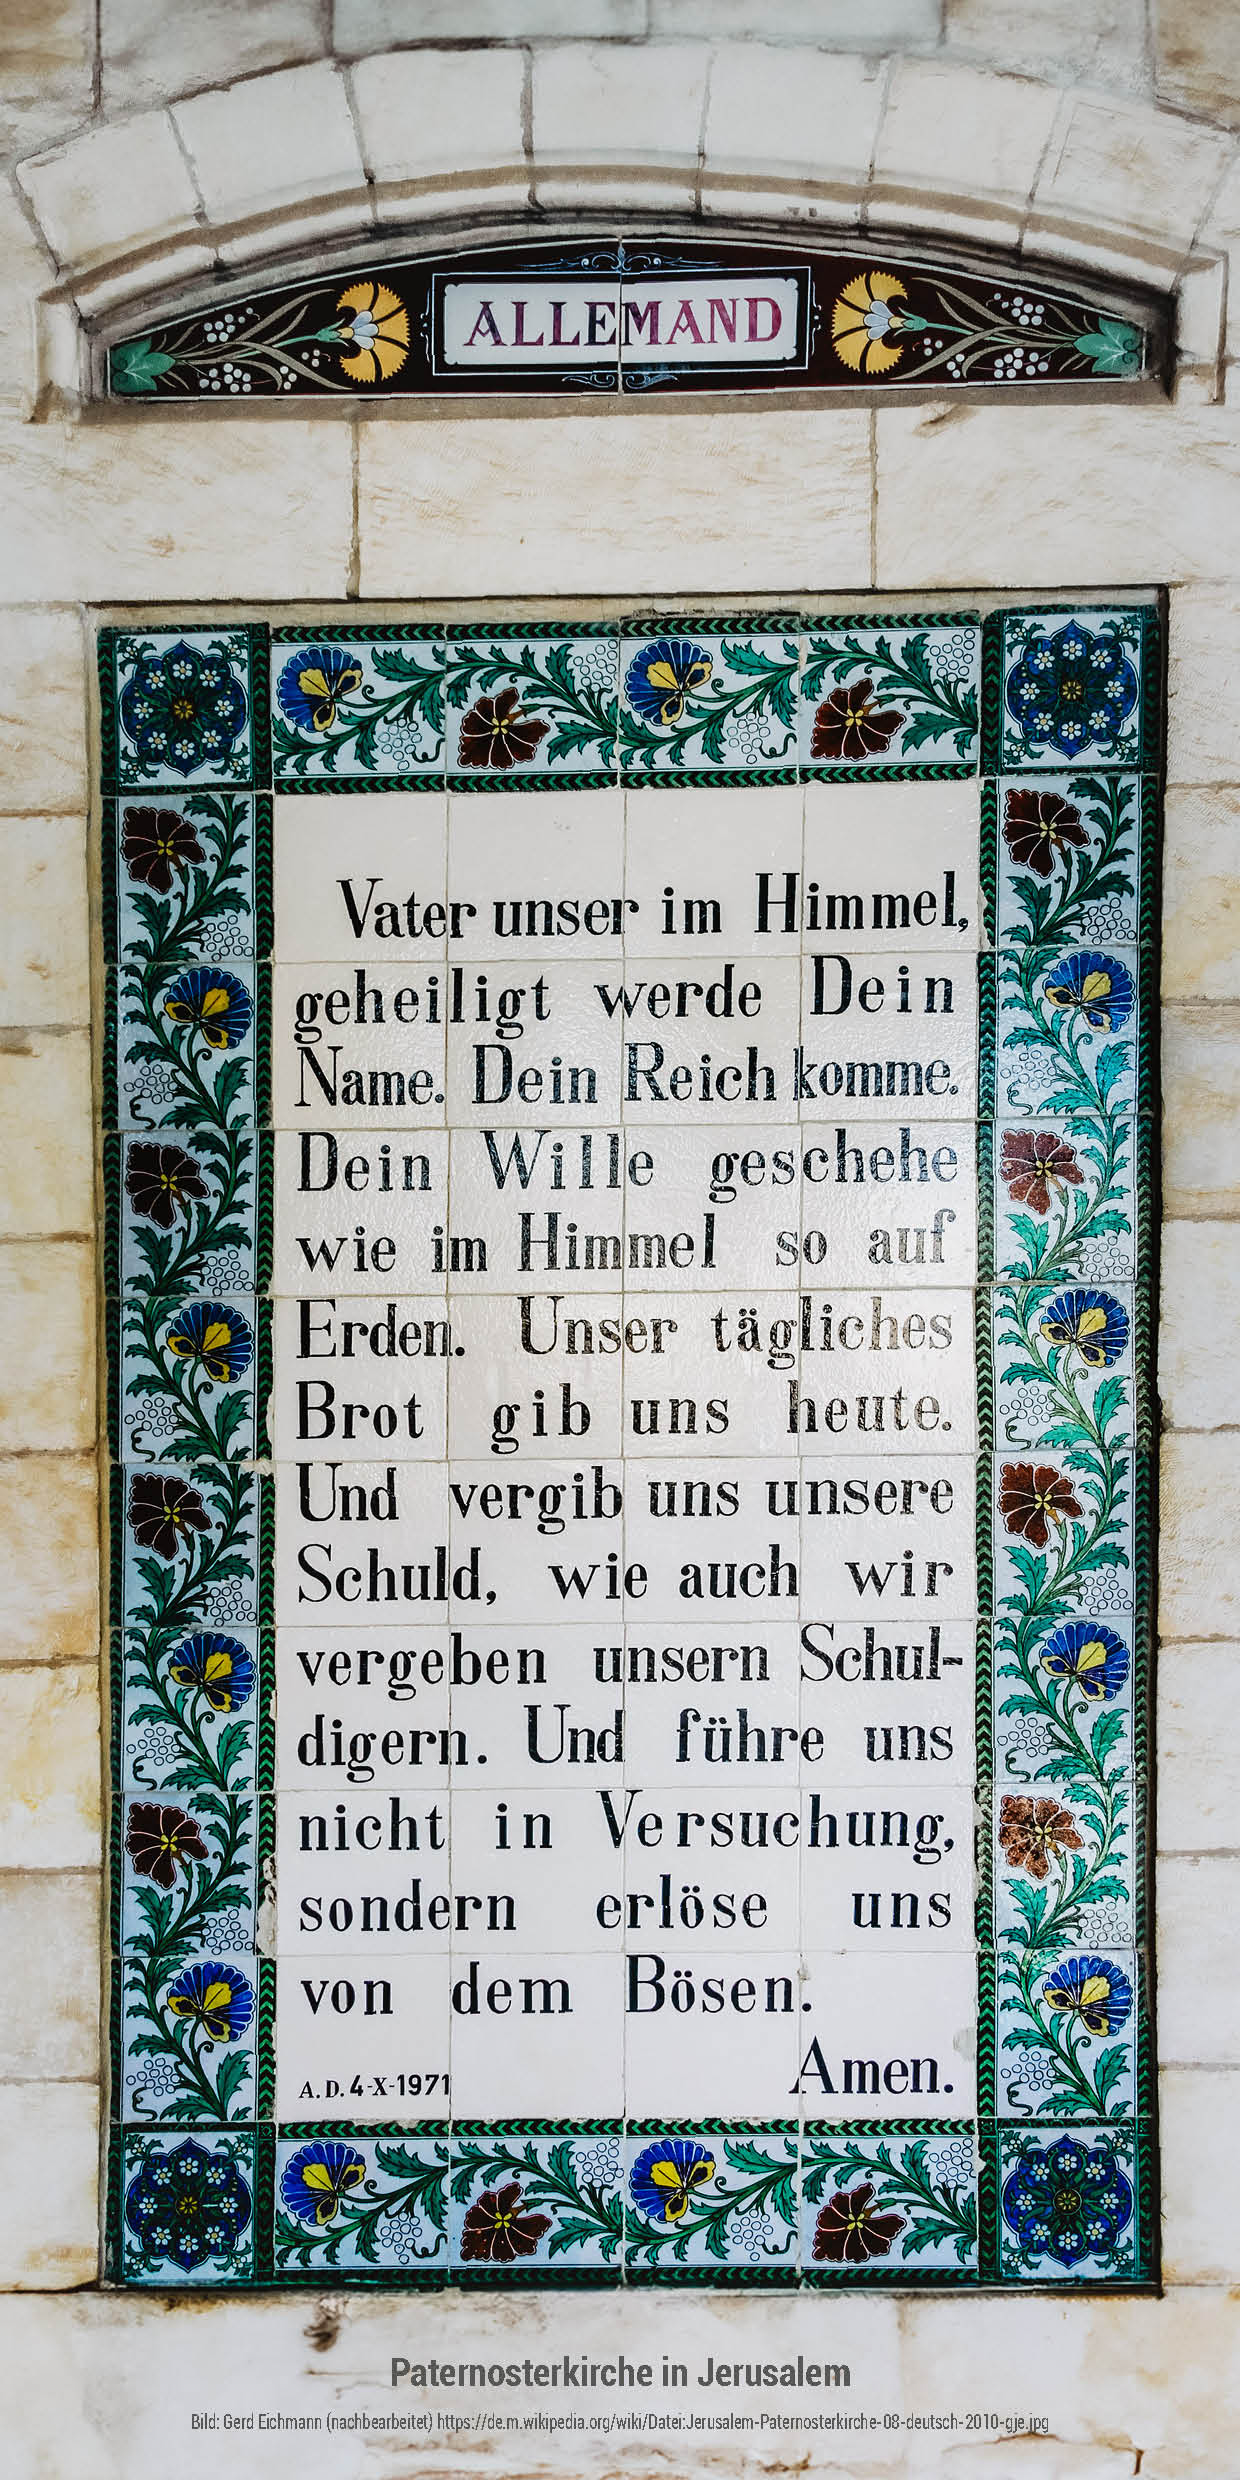 ALLEMAND
Vater unser im Himmel,
geheiligt werde Dein
Name. Dein Reich komme.
Dein Wille geschehe
wie im Himmel so auf
Erden. Unser tägliches
Brot gib uns heute.
Und vergib uns unsere
Schuld, wie auch wir
vergeben unsern Schul-
digern. Und führe uns
nicht in Versuchung,
sondern erlöse uns
von dem Bösen.
Amen.
A.D. 4-X-1971
Paternosterkirche in Jerusalem
Bild: Gerd Eichmann (nachbearbeitet) https://de.m.wikipedia.org/wiki/Datei:Jerusalem-Paternosterkirche-08-deutsch-2010-gje.jpg